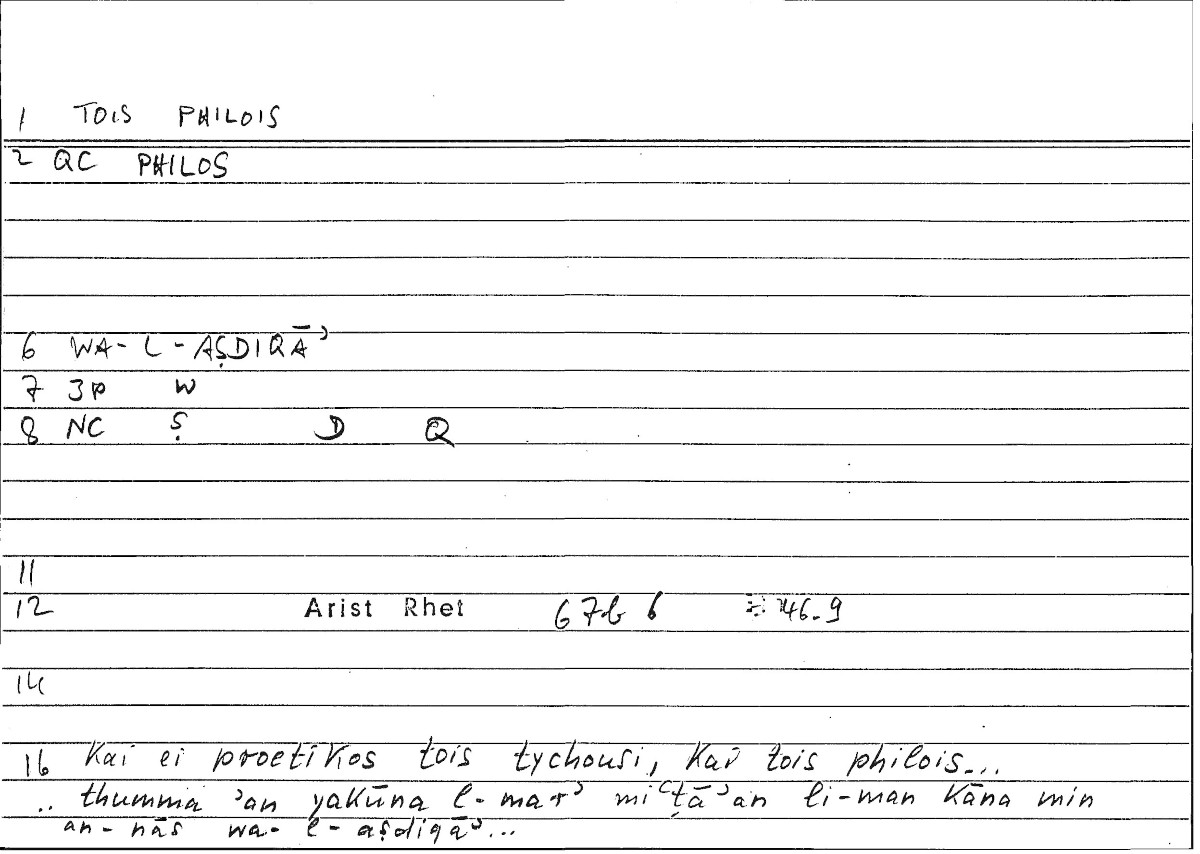 1 TOIS PHILOIS
2 QC PHILOS
6 WA-L-AṢDIQĀʾ
7 3P W
8 NC Ṣ D Q
11
12 Arist Rhet 67b 6 46.9
14
16 Kai ei proetikos tois tychousi, kai tois philois...
.. thumma ʾan yakūna l-marʾ miʿṭāʾan li-man kāna min
an-nās wa-l-aṣdiqāʾ...